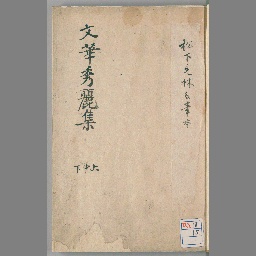 松下見林先生筆本
文華秀麗集
上中下